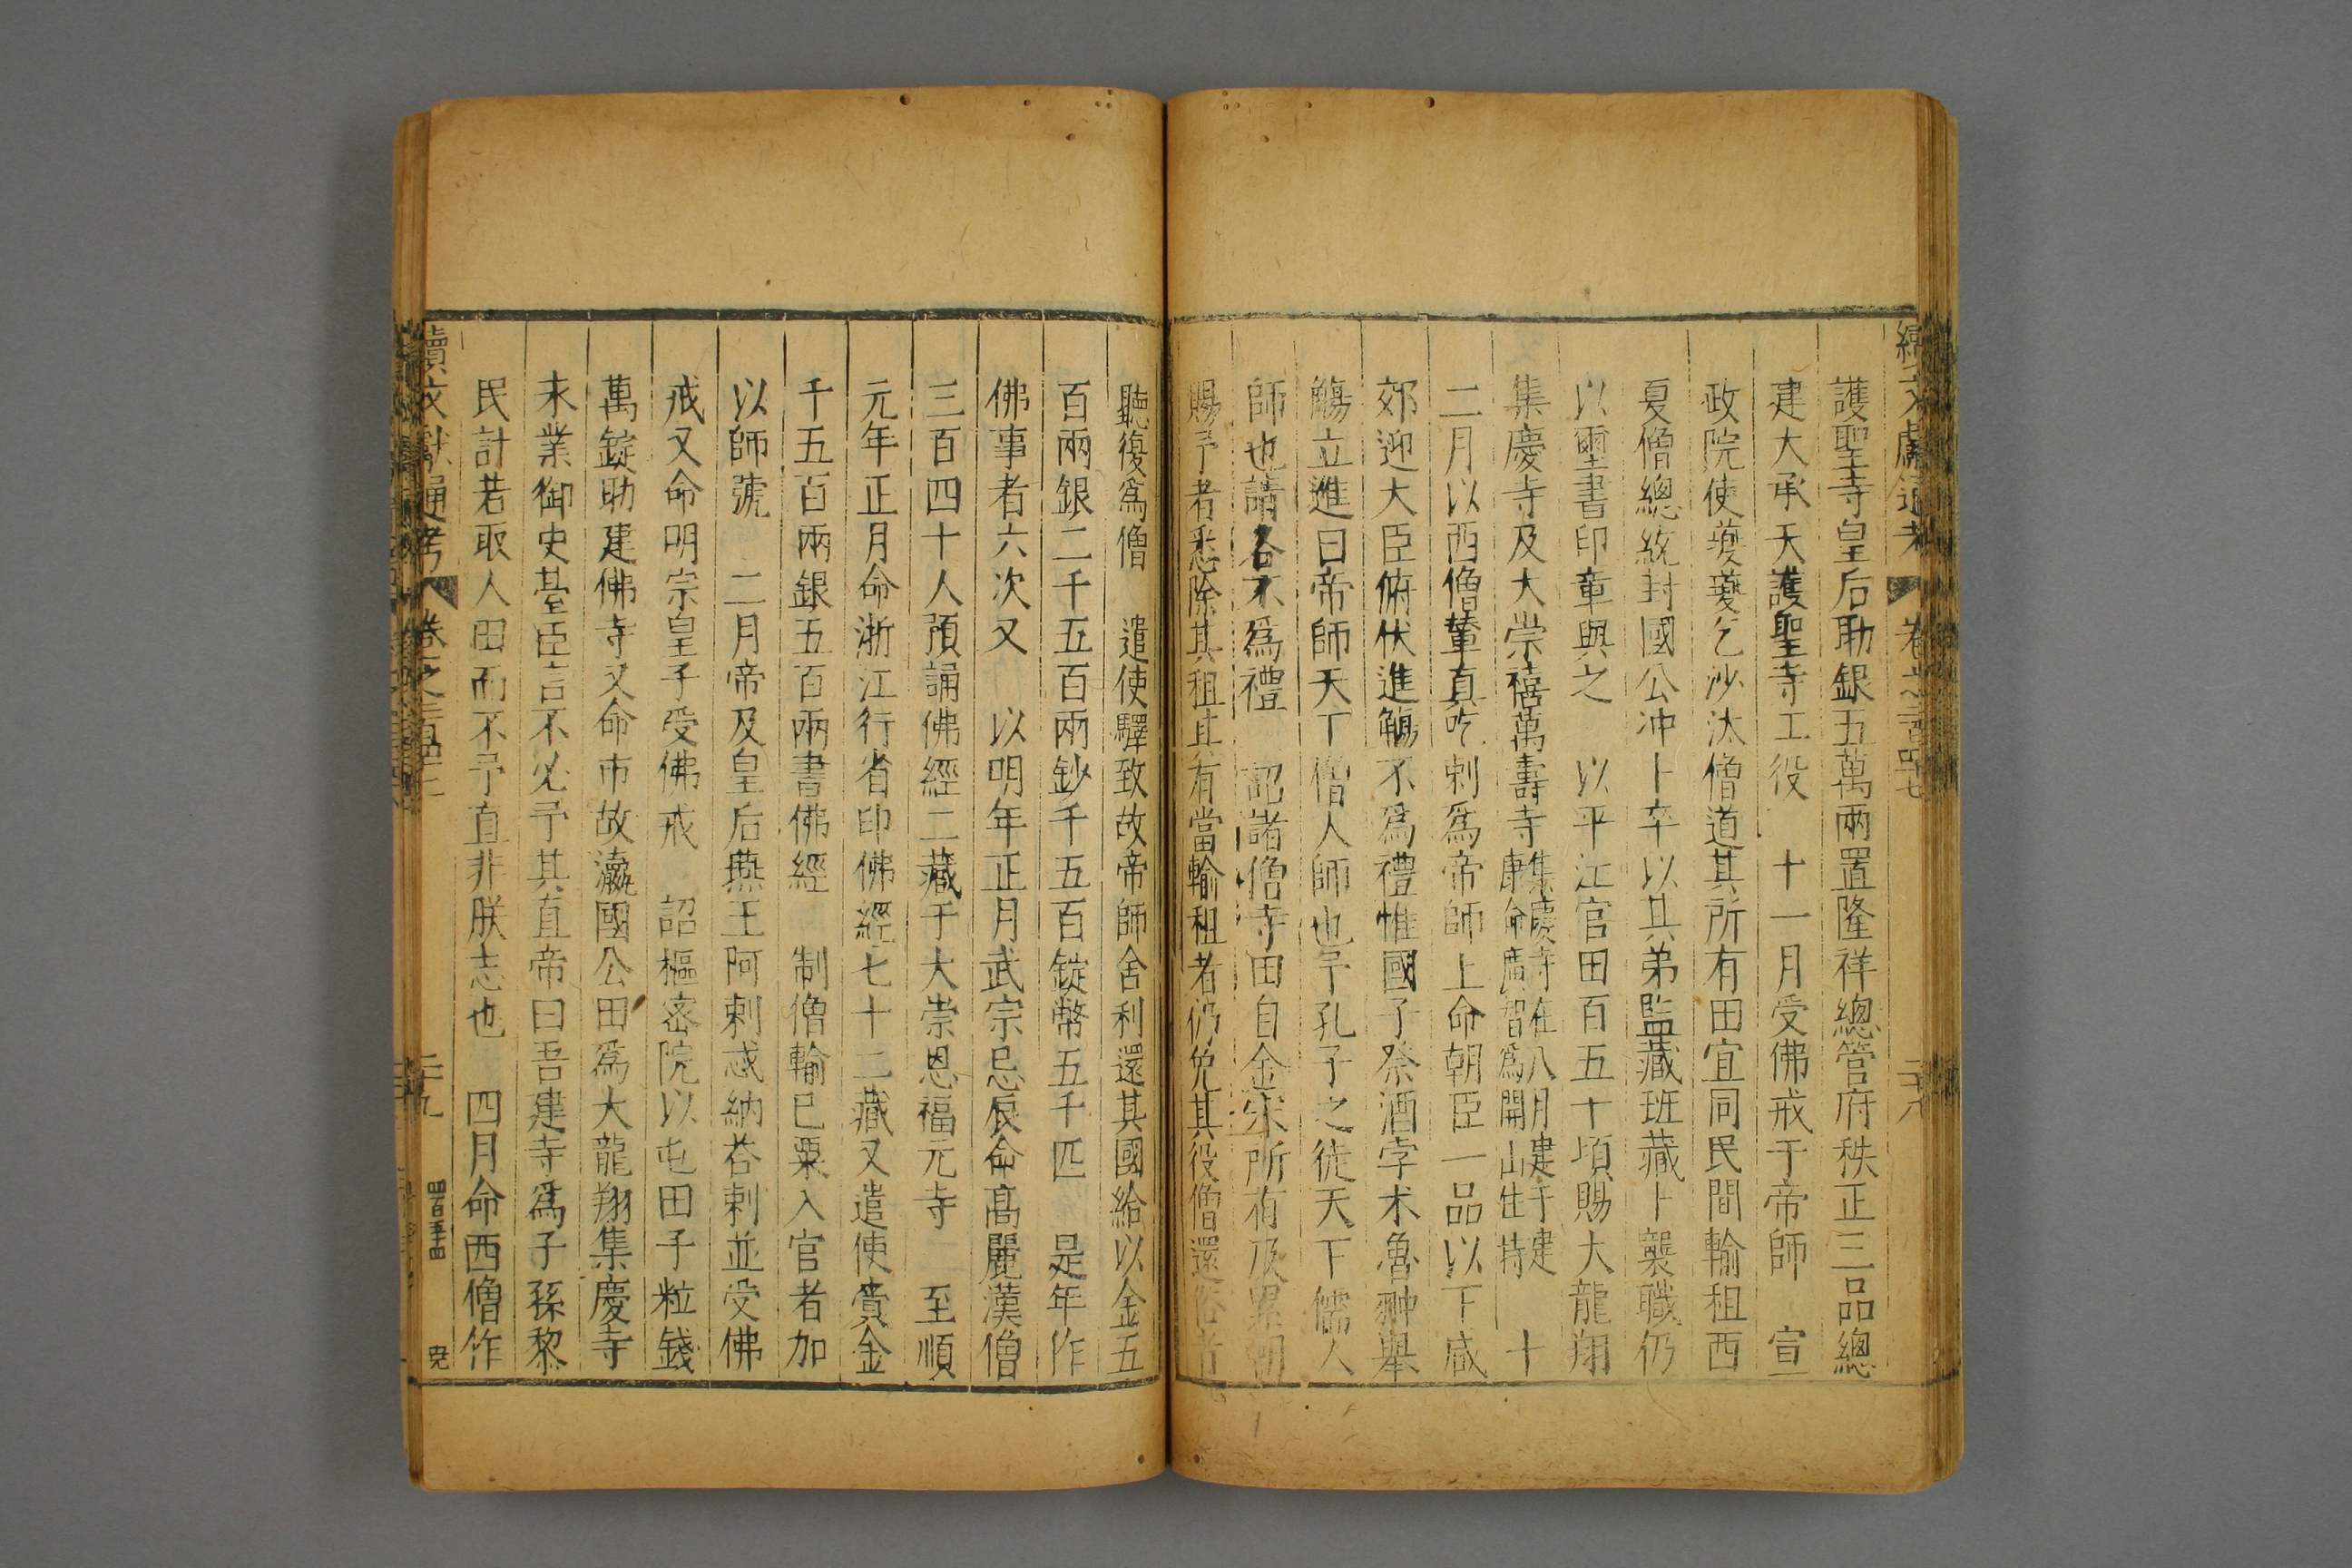 護聖寺皇后助銀五萬兩置隆祥總管府秩正三品總
建大承天護聖寺工役 十一月受佛戒于帝師 宣
政院使夔夔乞沙汰僧道其所有田宜同民間輸租西
夏僧總統封國公冲卜卒以其弟監藏班藏卜襲職仍
以璽書印章與之 以平江官田百五十頃賜大龍翔
集慶寺及大崇禧萬壽寺 集慶寺在八月建于建康命廣智爲開山住持 十
二月以西僧輦真吃剌爲帝師上命朝臣一品以下咸
郊迎大臣俯伏進觴不爲禮惟國子祭酒孛术魯翀舉
觴立進曰帝師天下僧人師也予孔子之徒天下儒人
師也請各不爲禮 詔諸僧寺田自金宋所有及累朝
賜予者悉除其租其有當輸租者仍免其役僧還俗者
聽復爲僧 遣使驛致故帝師舍利還其國給以金五
百兩銀二千五百兩鈔千五百錠幣五千匹 是年作
佛事者六次又 以明年正月武宗忌辰命高麗漢僧
三百四十人預誦佛經二藏于大崇恩福元寺 至順
元年正月命浙江行省印佛經七十二藏又遣使賫金
千五百兩銀五百兩書佛經 制僧輸已粟入官者加
以師號 二月帝及皇后燕王阿剌忒納荅剌並受佛
戒又命明宗皇子受佛戒 詔樞密院以屯田子粒錢
萬錠助建佛寺又命市故瀛國公田爲大龍翔集慶寺
末業御史臺臣言不必予其直帝曰吾建寺爲子孫黎
民計若取人田而不予直非朕志也 四月命西僧作
續文獻通考 卷之二百四十七 二十九 四百五十四